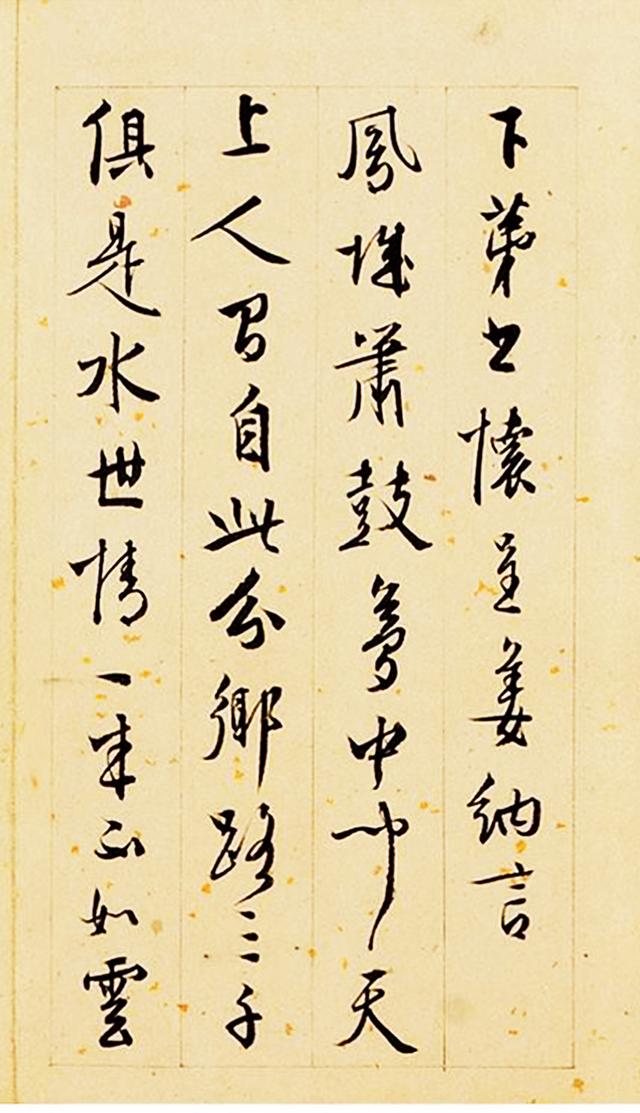 下第書懷呈姜納言
鳳城蕭鼓夢中聞天
上人間自此分鄉路三千
俱是水世情一半不如雲